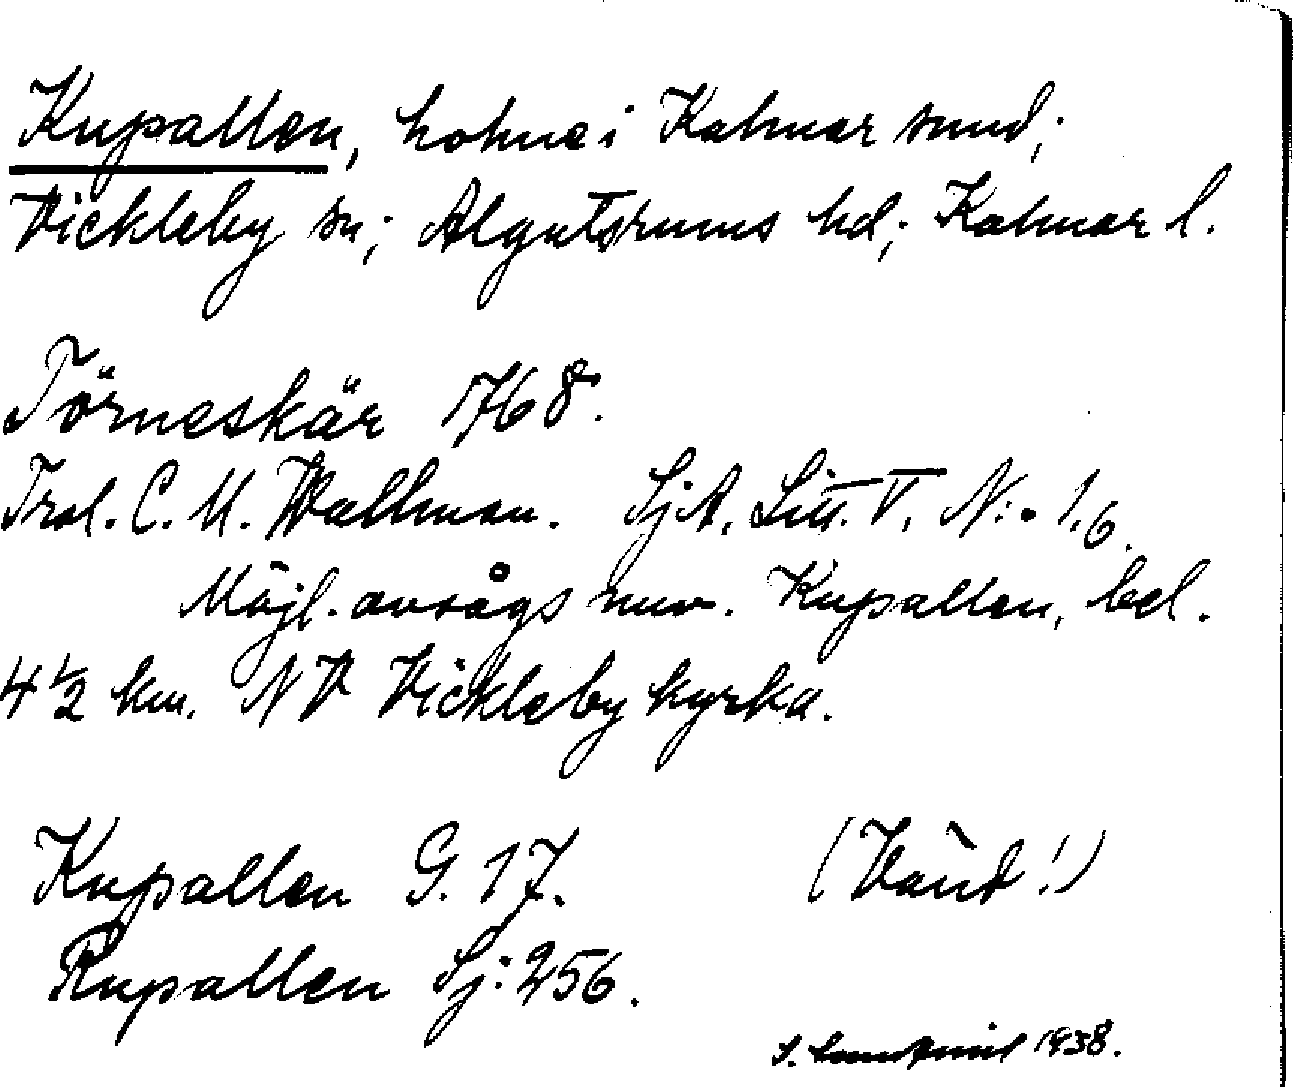 Kupallen, holme i Kalmar sund;
Vickleby sn; Algutsrums hd; Kalmar l.
Törneskär 1768.
Trol. C. M. Wallman. SjA. Litt. V. N:o 1.6.
Möjl. avsågs nuv. Kupallen, bel.
4 1/2 km. NV Vickleby kyrka.
Kupallen G. 17. (Vänd!)
Rupallen Sj: 256.
1938.